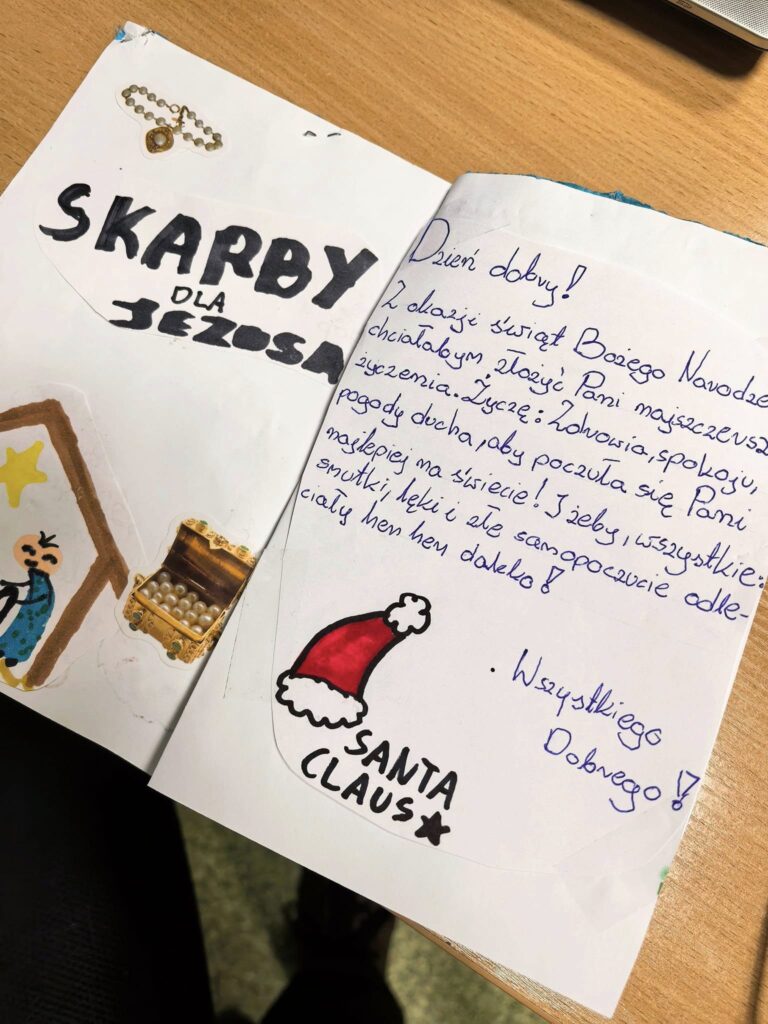 SKARBY
DLA
JEZUSA
Dzień dobry!
Z okazji świąt Bożego Narodze
chciałabym złożyć Pani najszczersz
życzenia. Życzę: Zdrowia, spokoju,
pogody ducha, aby poczuła się Pani
najlepiej na świecie! I żeby, wszystkie:
smutki, lęki i złe samopoczucie odle-
ciały hen hen daleko!
Wszystkiego
Dobrego!
SANTA
CLAUS